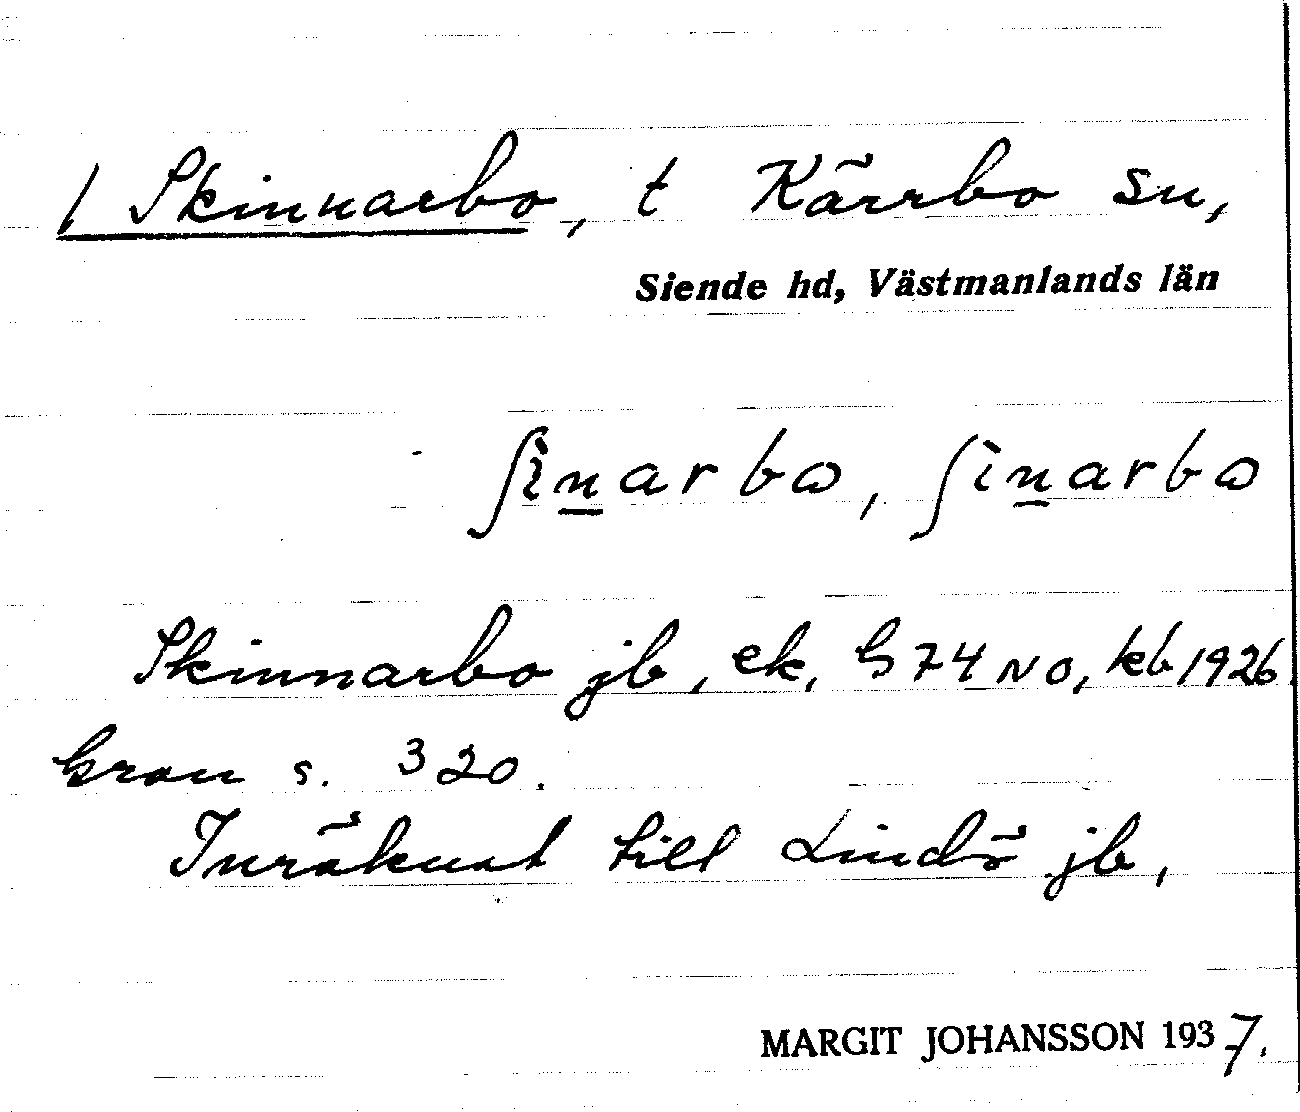 / Skinnarbo, t Kärrbo sn,
Siende hd, Västmanlands län
ʃìn̲arbω, ʃìn̲arbω
Skinnarbo jb, ek, G 74 NO, kb 1926
Grau s. 320.
Inräknat till Lindö jb,
MARGIT JOHANSSON 1937.